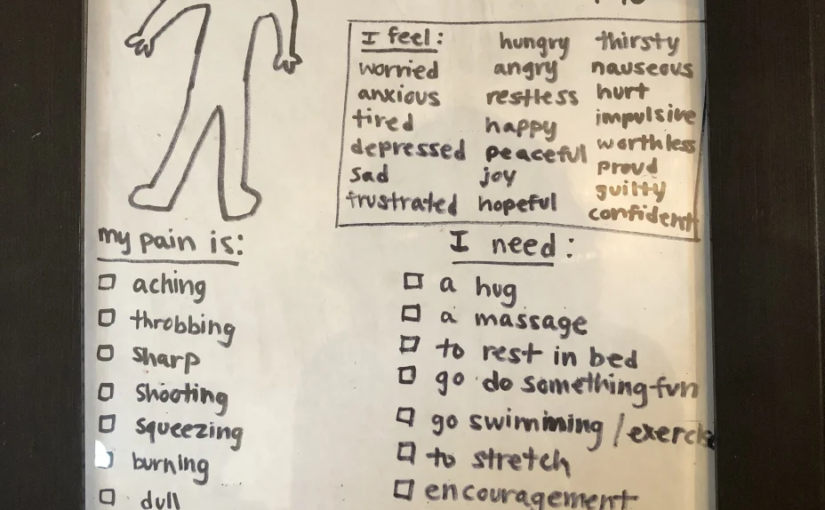 I feel: hungry thirsty
worried angry nauseous
anxious restless hurt
tired happy impulsive
depressed peaceful worthless
sad joy proud
frustrated hopeful guilty
confident
my pain is:
aching
throbbing
sharp
shooting
squeezing
burning
dull
I need:
a hug
a massage
to rest in bed
go do something fun
go swimming / exercise
to stretch
encouragement